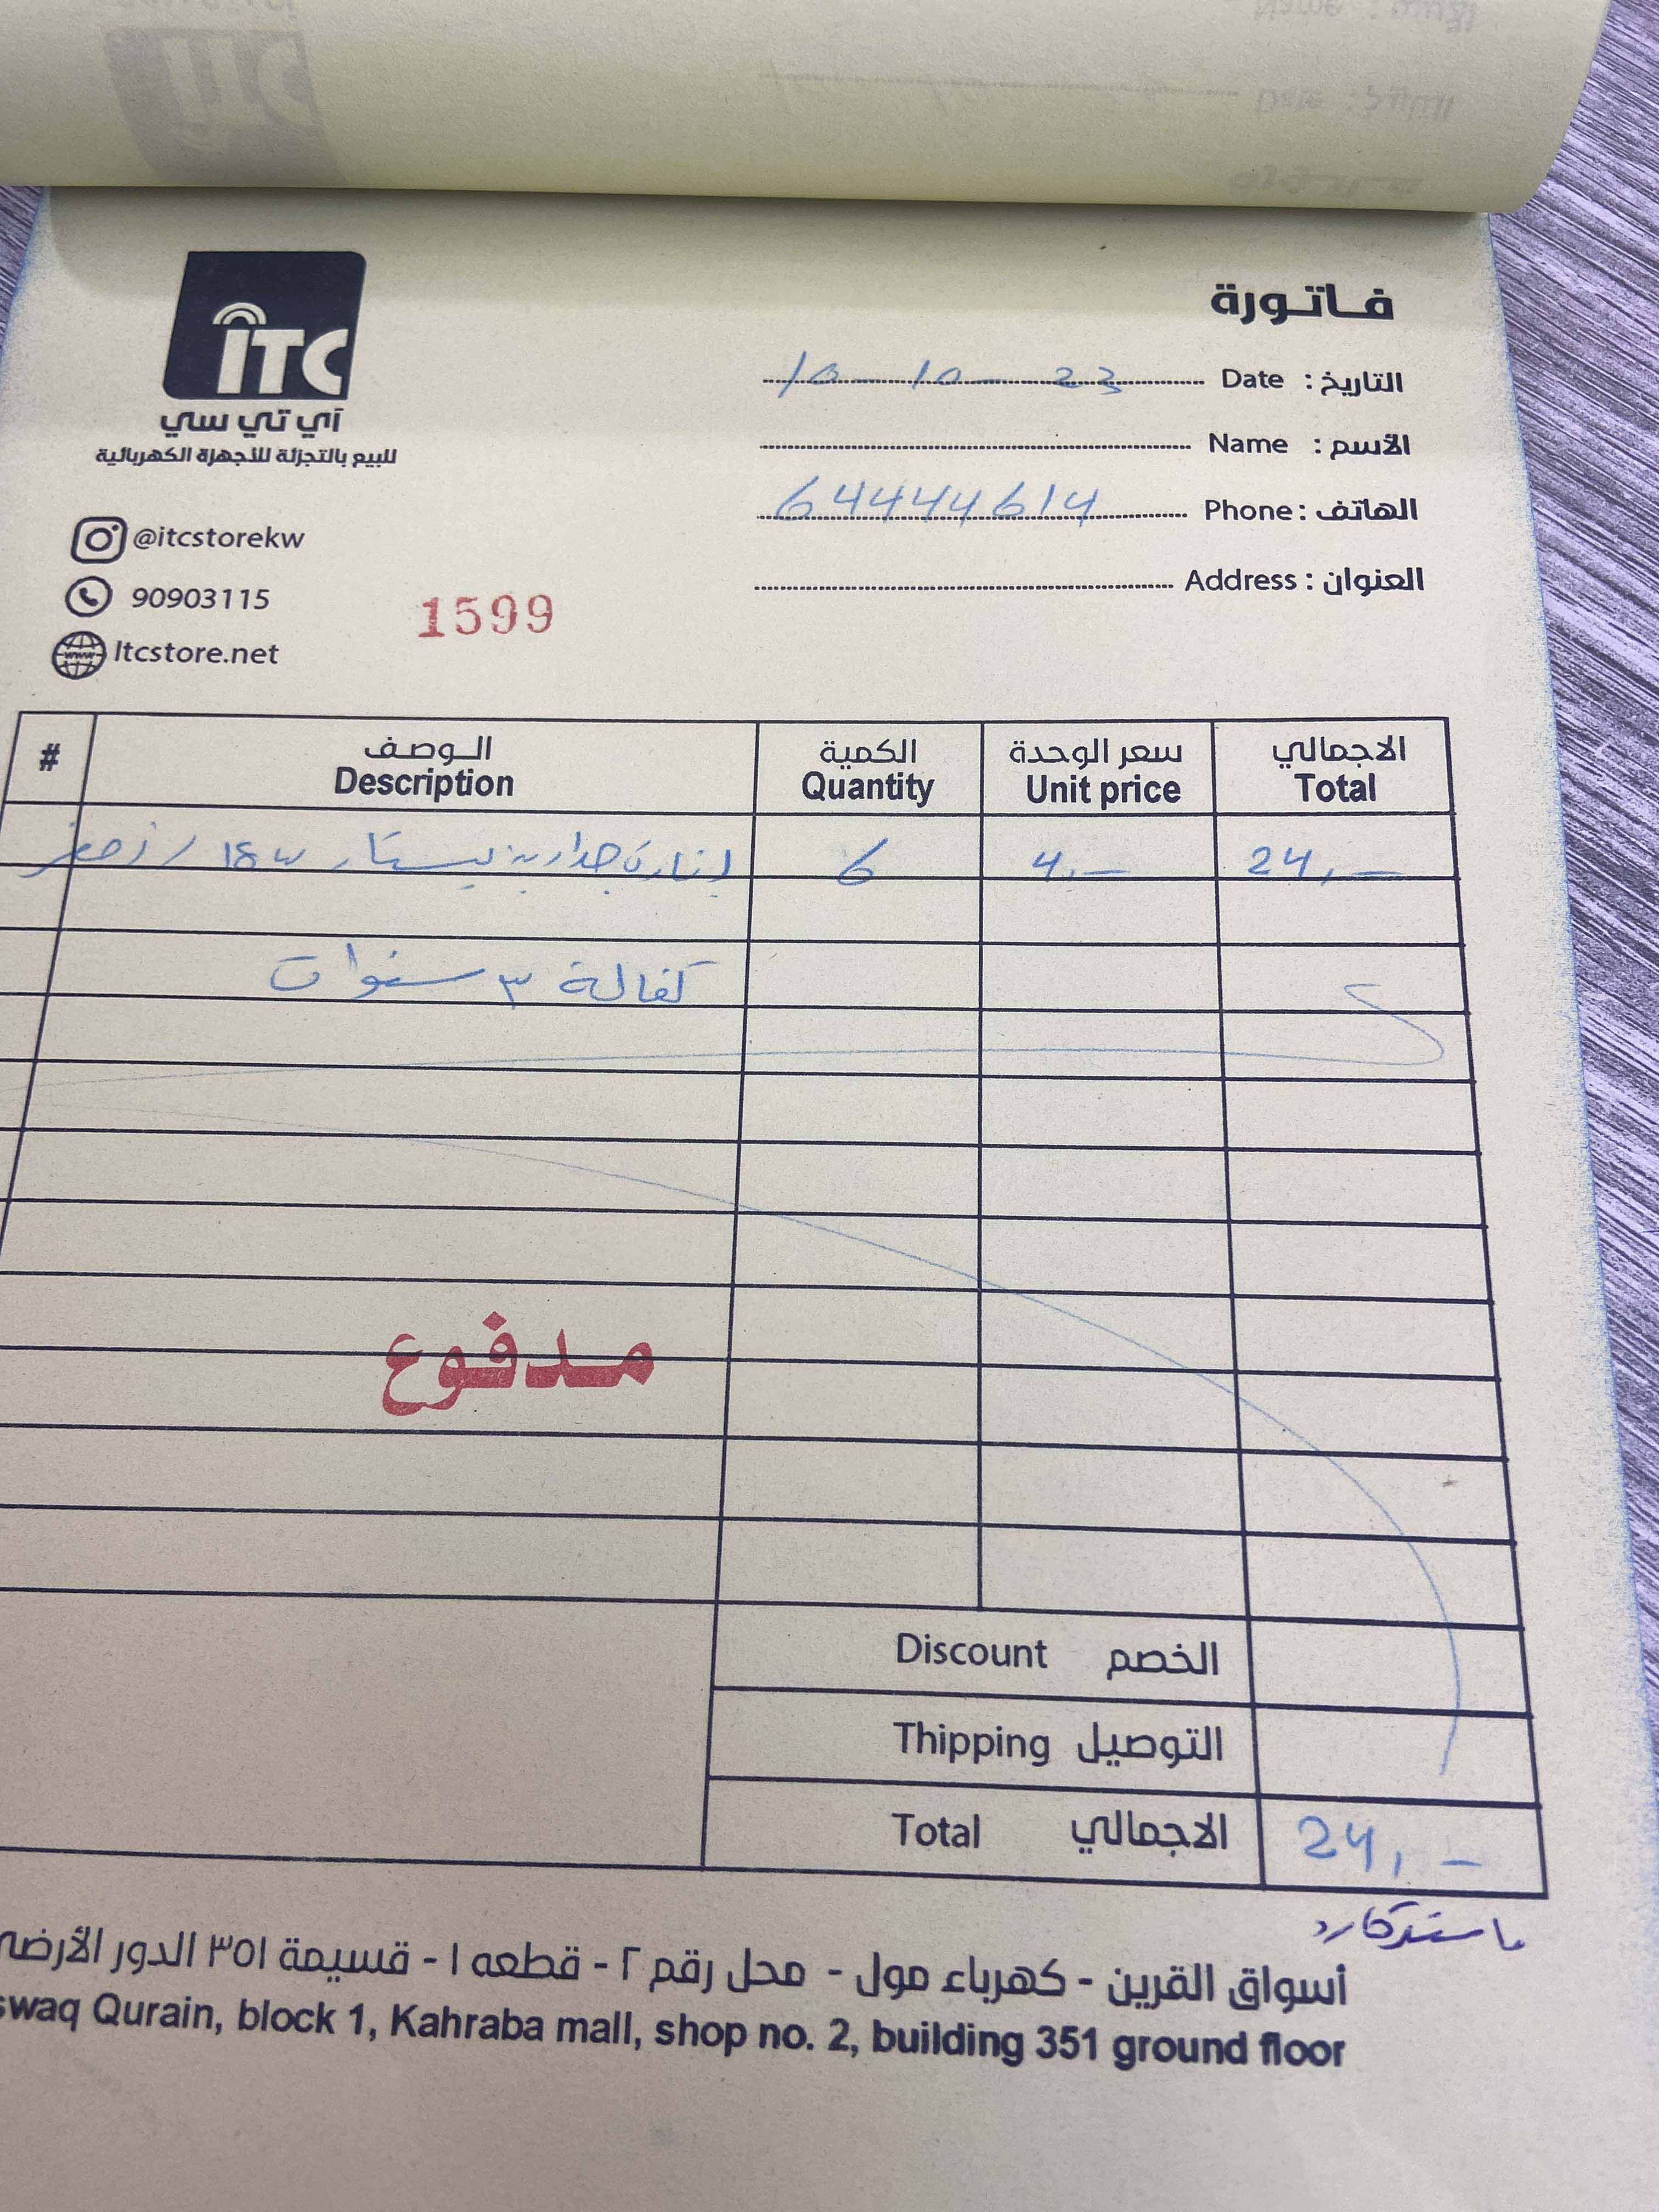 ITC
آي تي سي
للبيع بالتجزئة للأجهزة الكهربائية
@itcstorekw
90903115
Itcstore.net
1599
فاتورة
التاريخ : Date 10-10-23
الأسم : Name
الهاتف : Phone 64444614
العنوان : Address
# الوصف الكمية سعر الوحدة الاجمالي
Description Quantity Unit price Total
إنارة جدارية بيستار 18w / 6 4,- 24,-
كفالة ٣ سنوات
مدفوع
Discount الخصم
Thipping التوصيل
Total الاجمالي 24,-
ماستركارد
أسواق القرين - كهرباء مول - محل رقم ٢ - قطعه ١ - قسيمة ٣٥١ الدور
Qurain, block 1, Kahraba mall, shop no. 2, building 351 ground floor